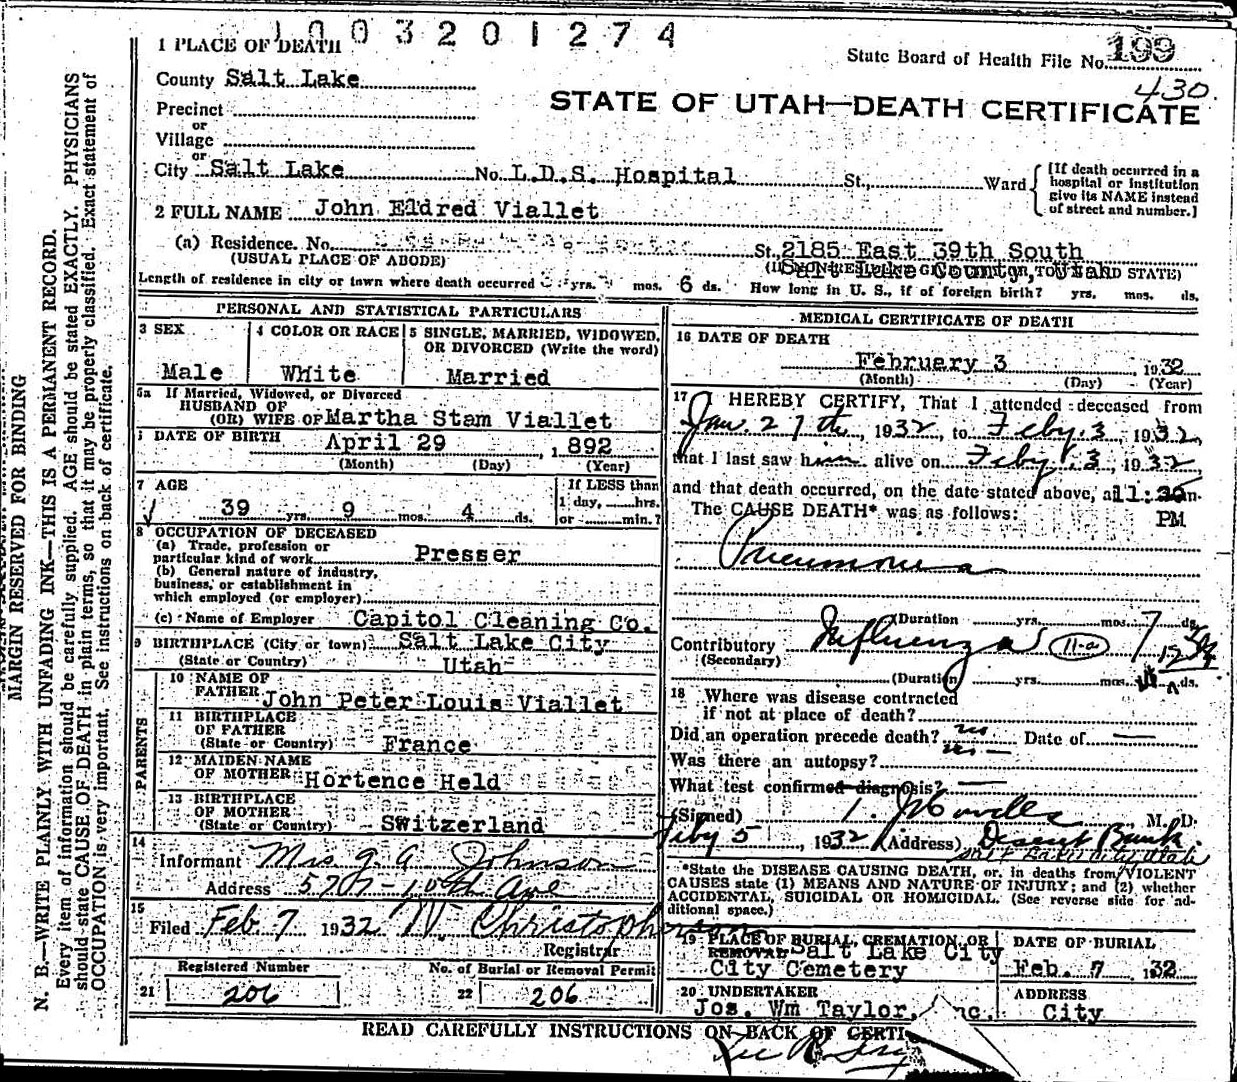 1003201274
1 PLACE OF DEATH
State Board of Health File No. 199
430.
County Salt Lake
STATE OF UTAH—DEATH CERTIFICATE
Precinct
or
Village
or
City Salt Lake No. L.D.S. Hospital St., Ward
[If death occurred in a
hospital or institution
give its NAME instead
of street and number.]
2 FULL NAME John Eldred Viallet
(a) Residence. No. St., 2185 East 39th South
(USUAL PLACE OF ABODE)
Salt Lake County, Utah
Length of residence in city or town where death occurred yrs. mos. 6 ds. How long in U. S., if of foreign birth? yrs. mos. ds.
PERSONAL AND STATISTICAL PARTICULARS
3 SEX
Male
4 COLOR OR RACE
White
5 SINGLE, MARRIED, WIDOWED,
OR DIVORCED (Write the word)
Married
5a If Married, Widowed, or Divorced
HUSBAND OF
(OR) WIFE OF Martha Stam Viallet
DATE OF BIRTH April 29, 1892
(Month) (Day) (Year)
7 AGE
39 yrs. 9 mos. 4 ds.
If LESS than
1 day, hrs.
or min.?
8 OCCUPATION OF DECEASED
(a) Trade, profession or
particular kind of work Presser
(b) General nature of industry,
business, or establishment in
which employed (or employer)
(c) Name of Employer Capitol Cleaning Co.
9 BIRTHPLACE (City or town) Salt Lake City
(State or Country) Utah
PARENTS
10 NAME OF
FATHER John Peter Louis Viallet
11 BIRTHPLACE
OF FATHER
(State or Country) France
12 MAIDEN NAME
OF MOTHER Hortence Held
13 BIRTHPLACE
OF MOTHER
(State or Country) Switzerland
14
Informant Mrs J. A. Johnson
Address 5707-10th Ave
15
Filed Feb 7 1932 W Christopherson
Registrar
Registered Number
21 206
No. of Burial or Removal Permit
22 206
MEDICAL CERTIFICATE OF DEATH
16 DATE OF DEATH
February 3, 1932
(Month) (Day) (Year)
17 I HEREBY CERTIFY, That I attended deceased from
Jan. 27th, 1932, to Feby. 3 1932,
that I last saw him alive on Feby. 3, 1932
and that death occurred, on the date stated above, at 11: m.
The CAUSE DEATH* was as follows:
PM
Pneumonia
(Duration yrs. mos. 7 ds.
Contributory Influenza 11-a
(Secondary)
(Duration yrs. mos. ds.
18 Where was disease contracted
if not at place of death?
Did an operation precede death? no Date of —
Was there an autopsy? no
What test confirmed diagnosis? —
(Signed) M. D.
Feby 5, 1932 (Address) Deseret Bank
Salt Lake City Utah
*State the DISEASE CAUSING DEATH, or, in deaths from VIOLENT
CAUSES state (1) MEANS AND NATURE OF INJURY; and (2) whether
ACCIDENTAL, SUICIDAL OR HOMICIDAL. (See reverse side for ad-
ditional space.)
19 PLACE OF BURIAL, CREMATION, OR
REMOVAL Salt Lake City
City Cemetery
DATE OF BURIAL
Feb. 7 1932
20 UNDERTAKER
Jos. Wm Taylor, nc.
ADDRESS
City
READ CAREFULLY INSTRUCTIONS ON BACK OF CERTI
MARGIN RESERVED FOR BINDING
N. B.—WRITE PLAINLY WITH UNFADING INK—THIS IS A PERMANENT RECORD.
Every item of information should be carefully supplied. AGE should be stated EXACTLY. PHYSICIANS
should state CAUSE OF DEATH in plain terms, so that it may be properly classified. Exact statement of
OCCUPATION is very important. See instructions on back of certificate.